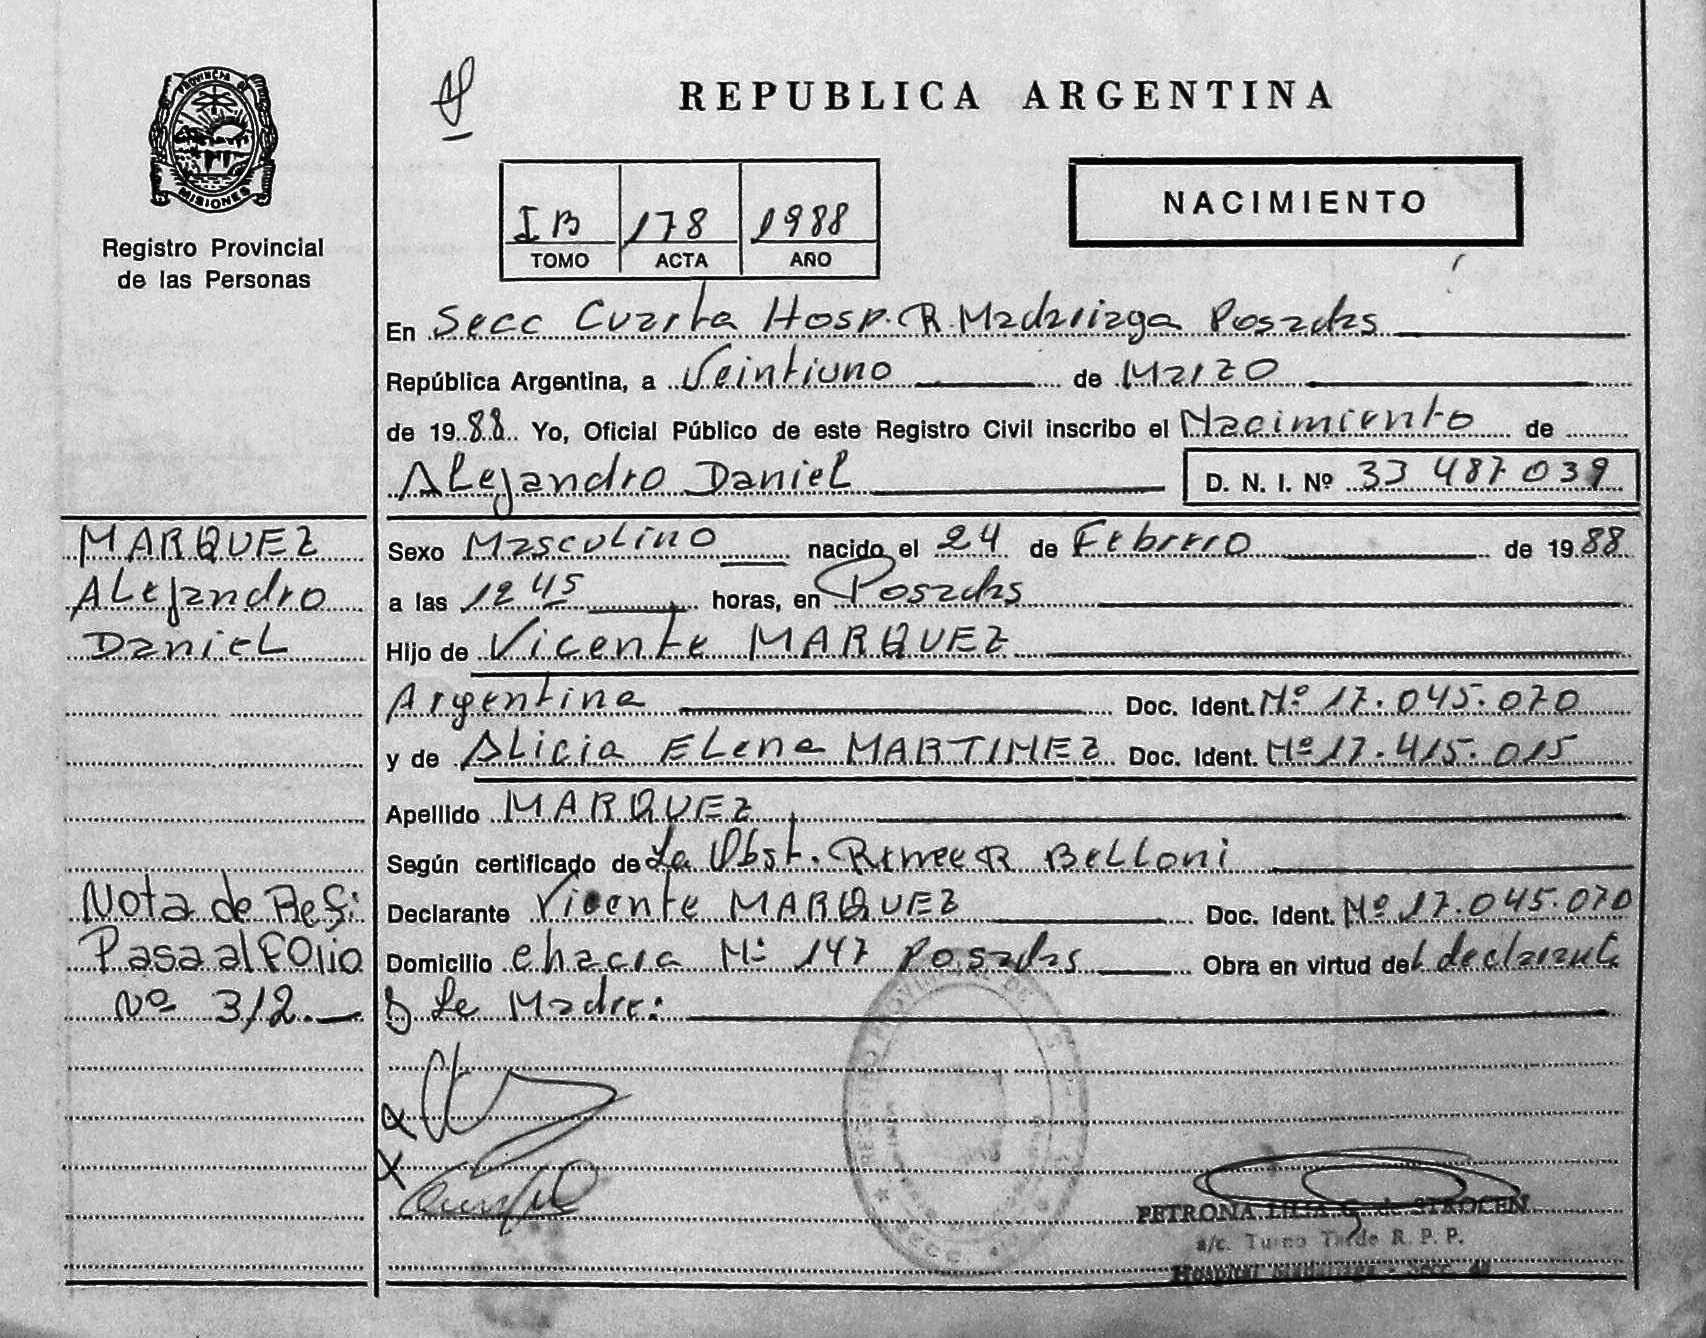 PROVINCIA DE
MISIONES
Registro Provincial
de las Personas
REPUBLICA ARGENTINA
I B 178 1988
TOMO ACTA AÑO
NACIMIENTO
En Secc Cuarta Hosp. R. Madariaga Posadas
República Argentina, a Veintiuno de Marzo
de 1988 Yo, Oficial Público de este Registro Civil inscribo el Nacimiento de
Alejandro Daniel D. N. I. Nº 33 487 039
MARQUEZ
Alejandro
Daniel
Sexo Masculino nacido el 24 de Febrero de 1988
a las 12 45 horas, en Posadas
Hijo de Vicente MARQUEZ
Argentina Doc. Ident. Nº 17.045.070
y de Alicia Elena MARTINEZ Doc. Ident. Nº 17.415.015
Apellido MARQUEZ
Según certificado de La Obst. Renee R Belloni
Declarante Vicente MARQUEZ Doc. Ident. Nº 17.045.070
Domicilio chacra Nº 147 Posadas Obra en virtud del declarante
y la Madre:
Nota de Ref:
Pasa al Folio
Nº 312.
PETRONA LILIA G. de STROCEN
a/c. Turno Tarde R. P. P.
Hospital Madariaga - Secc. 4a